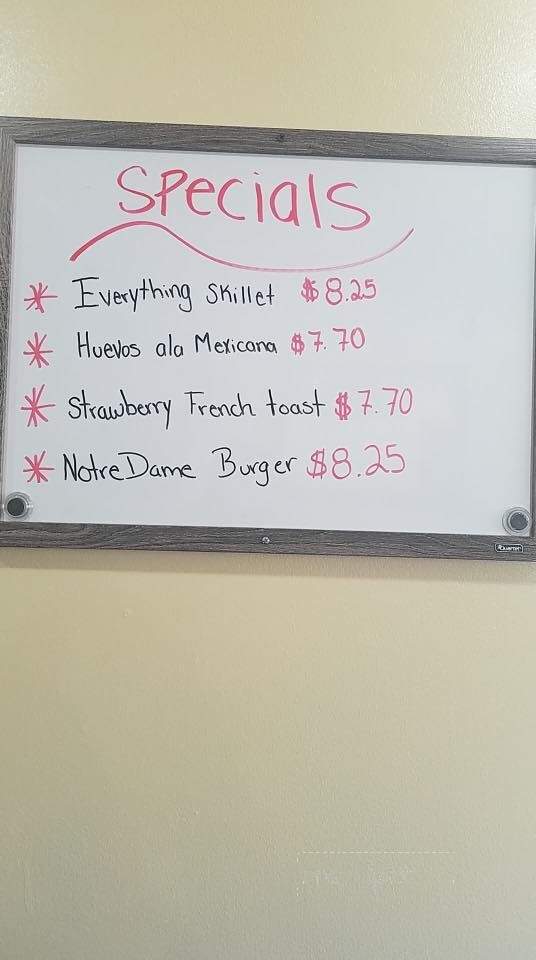 Specials
* Everything Skillet $8.25
* Huevos ala Mexicana $7.70
* Strawberry French toast $7.70
* Notre Dame Burger $8.25
Quartet